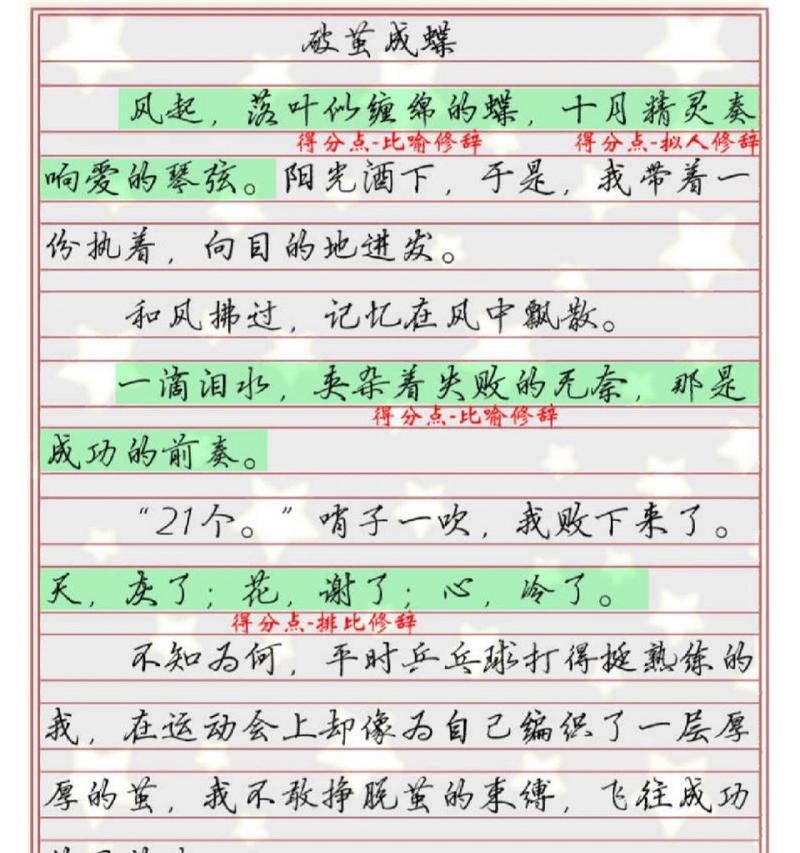 破茧成蝶
风起，落叶似缠绵的蝶，十月精灵奏
得分点-比喻修辞 得分点-拟人修辞
响爱的琴弦。阳光洒下，于是，我带着一
份执着，向目的地进发。
和风拂过，记忆在风中飘散。
一滴泪水，夹杂着失败的无奈，那是
得分点-比喻修辞
成功的前奏。
“21个。”哨子一吹，我败下来了。
天，灰了；花，谢了；心，冷了。
得分点-排比修辞
不知为何，平时乒乓球打得挺熟练的
我，在运动会上却像为自己编织了一层厚
厚的茧，我不敢挣脱茧的束缚，飞往成功